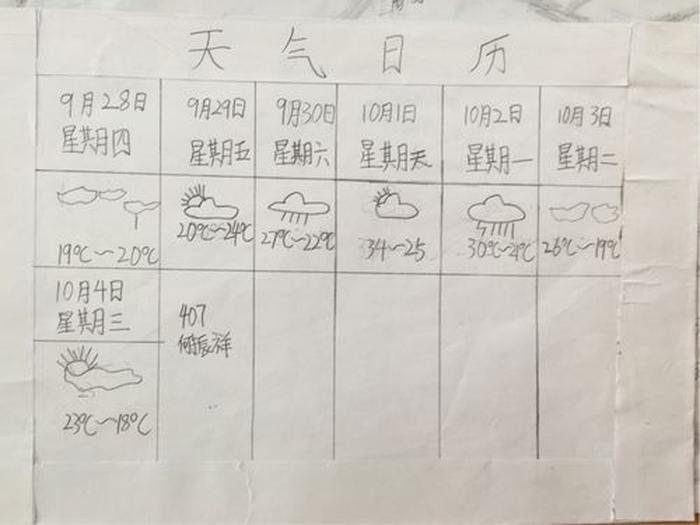 天气日历
9月28日 9月29日 9月30日 10月1日 10月2日 10月3日
星期四 星期五 星期六 星期天 星期一 星期二
19℃~20℃ 20℃~24℃ 27℃~22℃ 34~25 30℃~21℃ 26℃~19℃
10月4日
星期三
407
23℃~18℃